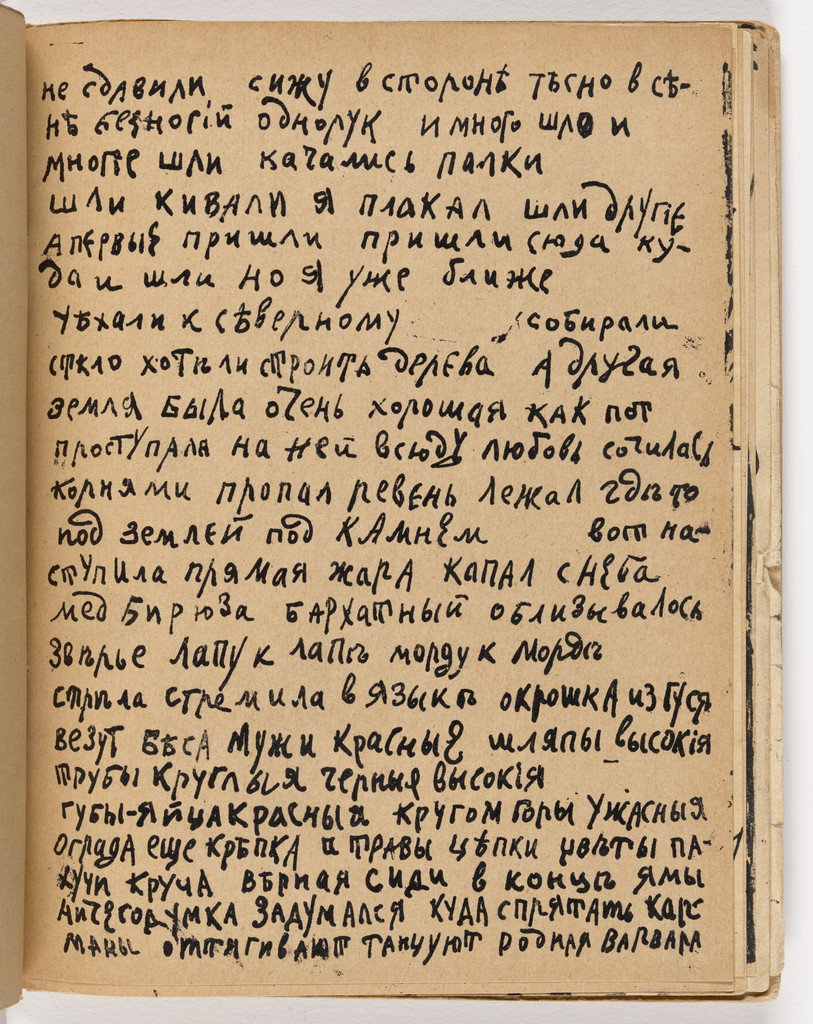 не сдавили сижу в сторонѣ тѣсно в сѣ-
нѣ безногій однорук и много шло и
многіе шли качались палки
шли кивали я плакал шли другіе
а первые пришли пришли сюда ку-
да и шли но я уже ближе
уѣхали к сѣверному собирали
сткло хотѣли строить дерева а другая
земля была очень хорошая как пот
проступала на ней всюду любовь сочилась
корнями пропал ревень лежал гдѣ то
под землей под камнем вот на-
ступила прямая жара капал с неба
мед бирюза бархатный облизывалось
звѣрье лапу к лапѣ морду к мордѣ
стрѣла стремила в языкѣ окрошка из гуся
везут бѣса мужи красные шляпы высокія
трубы круглыя черные высокія
губы-яйца красныя кругом горы ужасныя
ограда еще крѣпка и травы цѣпки цвѣты па-
хучи круча вѣрная сиди в концѣ ямы
ничегодумка задумался куда спрятать кар-
маны оттягивают танцуют родная варвара